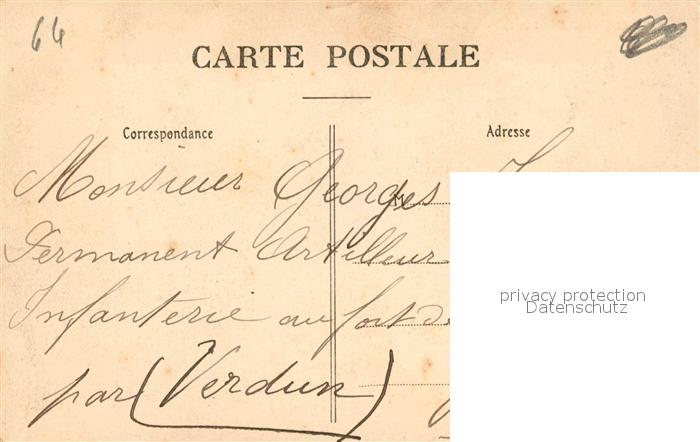 64
CARTE POSTALE
Correspondance
Adresse
Monsieur Georges
M
Permanent Artilleur
Infanterie au fort de
par (Verdun)
privacy protection
Datenschutz